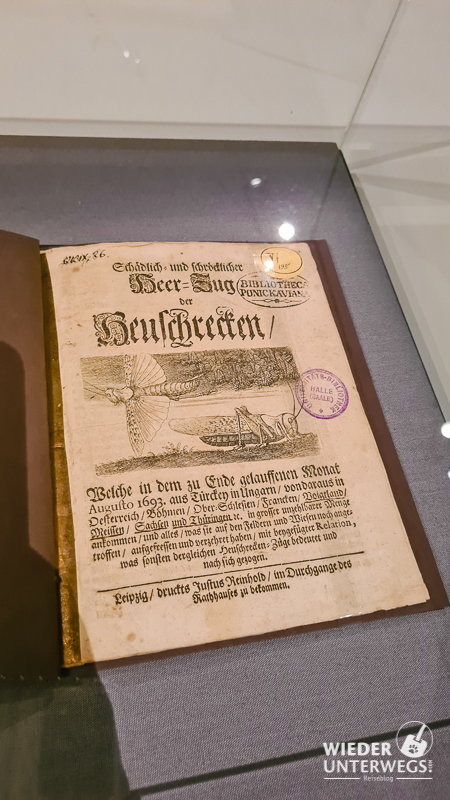 Schädlich- und schröcklicher
Heer-Zug
der
Heuschrecken/
BIBLIOTHECA
PONICKAVIANA
HALLE
(SAALE)
Welche in dem zu Ende gelauffenen Monat
Augusto 1693. aus Türckey in Ungarn/ von daraus in
Oesterreich/ Böhmen/ Ober-Schlesien/ Francken/ Voigtland/
Meissen/ Sachsen und Thüringen ꝛc. in grosser unzehlbarer Menge
ankommen/ und alles/ was sie auf den Feldern und Wiesen noch ange-
troffen/ aufgefressen und verzehret haben/ mit beygefügter Relation,
was sonsten dergleichen Heuschrecken-Züge bedeutet und
nach sich gezogen.
Leipzig/ druckts Justus Reinhold/ im Durchgange des
Rathhauses zu bekommen.
WIEDER
UNTERWEGS
.COM
Reiseblog